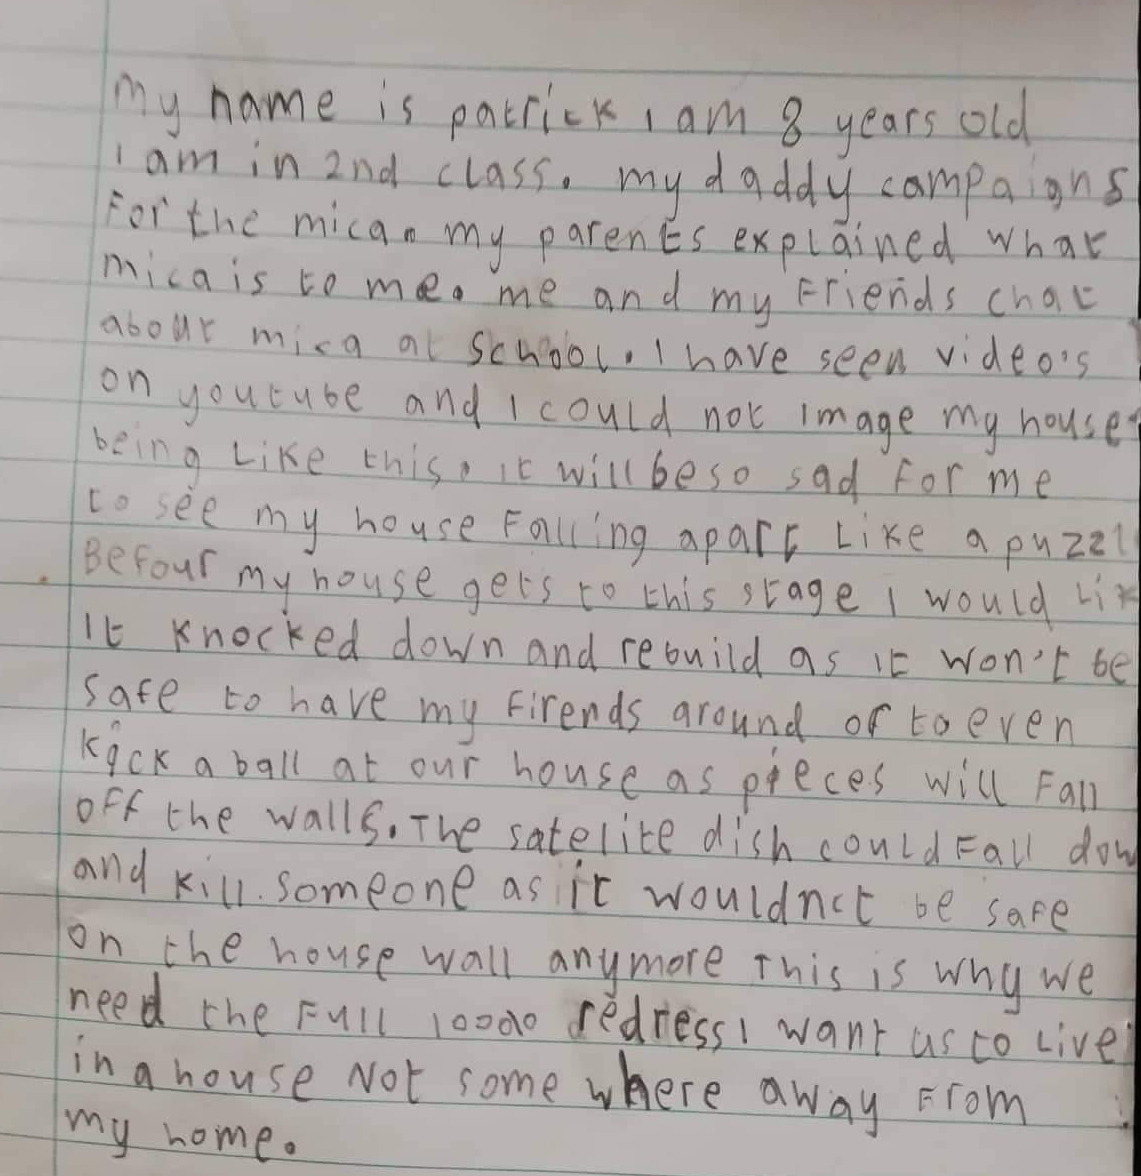 My name is patrick I am 8 years old
I am in 2nd class. my daddy campaigns
For the mica. my parents explained what
mica is to me. me and my Friends chat
about mica at school. I have seen video's
on youtube and I could not image my house
being Like this. it will be so sad for me
to see my house Falling apart Like a puzzl
Befour my house gets to this stage I would Lik
It knocked down and rebuild as it won't be
safe to have my Firends around or to even
kick a ball at our house as pieces will Fall
off the walls. The satelite dish could Fall dow
and kill someone as it wouldnct be safe
on the house wall anymore This is why we
need the Full redress I want us to Live
in a house Not some where away From
my home.